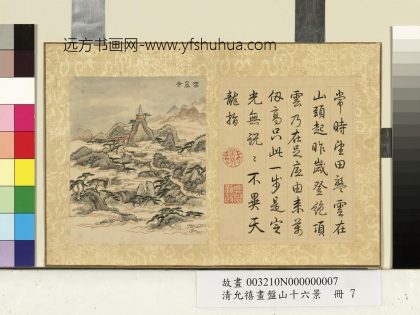 远方书画网-www.yfshuhua.com
雲罩寺
常時望田盤雲在
山頭起昨歲登絕頂
雲乃在足底由來萬
仞高只此一步是定
光無說〻不異天
龍指
故畫 003210N000000007
清允禧畫盤山十六景 冊 7